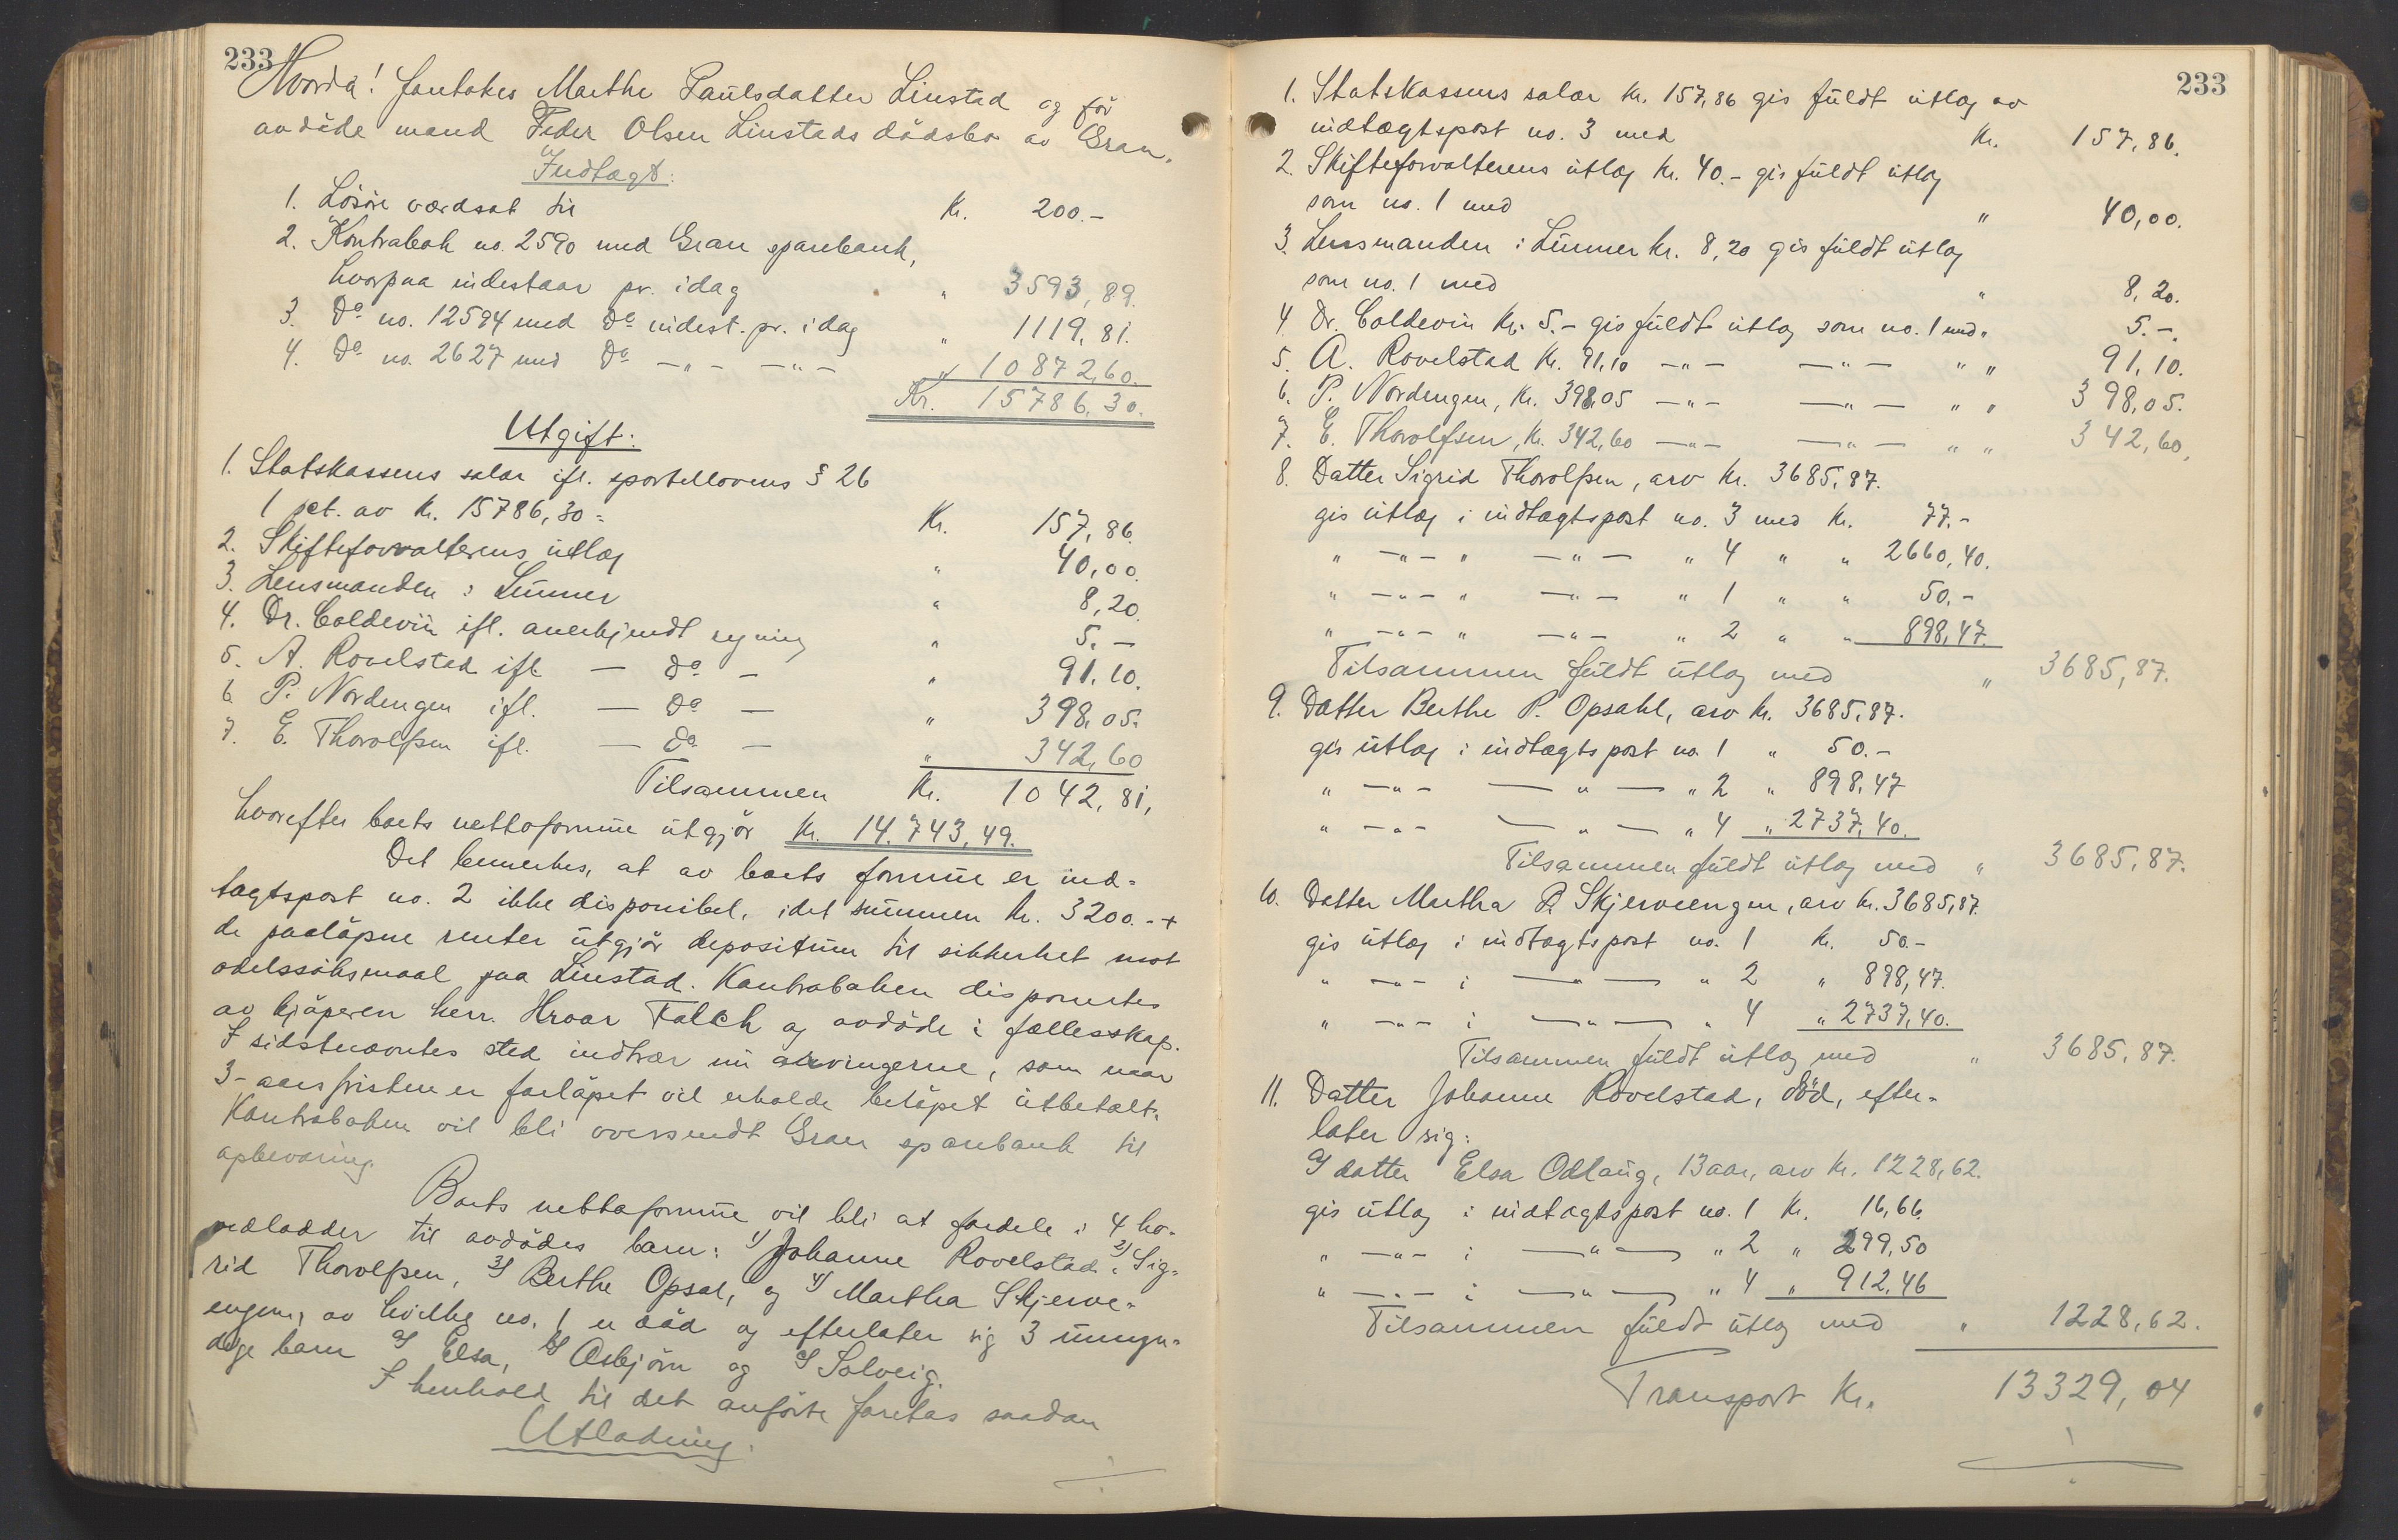 233
Hvorda! foretokes Marthe Paulsdatter Linstad og før
avdøde mand Peder Olsen Linstads dødsbo av Gran.
Indtægt:
1. Løsøre værdsat til Kr. 200.-
2. Kontrabok no. 2590 med Gran sparebank,
hvorpaa indestaar pr. idag " 3593,89.
3. Do no. 12594 med Do indest. pr. idag " 1119,81.
4. Do no. 2627 med Do -"- -"- " 10872,60.
Kr. 15786,30.
Utgift:
1. Statskassens salær ifl. sportellovens § 26
1 pct. av Kr. 15786,30= Kr. 157,86.
2. Skifteforvalterens utlæg " 40,00.
3. Lensmanden i Lunner " 8,20.
4. Dr. Coldevin ifl. anerkjendt regning " 5.-
5. A. Rovelstad ifl. - Do - " 91,10.
6. P. Nordengen ifl. - Do - " 398,05.
7. E. Thorolfsen ifl. - Do - " 342,60
Tilsammen Kr. 1042,81,
hvorefter boets nettoformue utgjør Kr. 14.743,49.
Det bemerkes, at av boets formue er ind-
tægtspost no. 2 ikke disponibel, idet summen Kr. 3200.- +
de paaløpne renter utgjør depositum til sikkerhet mot
odelssøksmaal paa Linstad. Kontraboken disponertes
av kjøperen herr. Hroar Falch og avdøde i fællesskap.
I sidstnævntes sted indtrær nu arvingerne, som naar
3-aars fristen er forløpet vil erholde beløpet utbetalt.
Kontraboken vil bli oversendt Gran sparebank til
opbevaring.
Boets nettoformue vil bli at fordele i 4 ho-
vedlodder til avdødes barn: 1) Johanne Rovelstad, 2) Sig-
rid Thorolfsen, 3) Berthe Opsal, og 4) Martha Skjerve-
engen, av hvilke no. 1 er død og efterlater sig 3 umyn-
dige barn a) Elsa, b) Asbjørn og c) Solveig.
I henhold til det anførte foretas saadan
Utlodning.
233
1. Statskassens salær Kr. 157,86 gis fuldt utlæg av
indtægtspost no. 3 med Kr. 157,86.
2. Skifteforvalterens utlæg Kr. 40.- gis fuldt utlæg
som no. 1 med " 40,00.
3. Lensmanden i Lunner Kr. 8,20 gis fuldt utlæg
som no. 1 med " 8,20.
4. Dr. Coldevin Kr. 5.- gis fuldt utlæg som no. 1 med " 5.-.
5. A. Rovelstad Kr. 91,10 -"- -"- " " 91,10.
6. P. Nordengen, Kr. 398,05 -"- -"- " " 398,05.
7. E. Thorolfsen, Kr. 342,60 -"- -"- " " 342,60,
8. Datter Sigrid Thorolfsen, arv Kr. 3685,87.
gis utlæg i indtægtspost no. 3 med Kr. 77.-
" -"- " -"- " 4 " " 2660,40.
" -"- " -"- " 1 " " 50,-
" -"- " -"- " 2 " " 898,47.
Tilsammen fuldt utlæg med " 3685,87.
9. Datter Berthe P. Opsahl, arv Kr. 3685,87.
gis utlæg i indtægtspost no. 1 " 50.-
" -"- -"- " 2 " 898,47
" -"- -"- " 4 " 2737,40.
Tilsammen fuldt utlæg med " 3685,87.
10. Datter Martha P. Skjerveengen, arv Kr. 3685,87.
gis utlæg i indtægtspost no. 1 Kr. 50.-
" -"- i -"- " 2 " 898,47.
" -"- i -"- " 4 " 2737,40.
Tilsammen fuldt utlæg med " 3685,87.
11. Datter Johanne Rovelstad, død, efter-
later sig:
a) datter Elsa Odlaug, 13 aar, arv Kr. 1228,62.
gis utlæg i indtægtspost no. 1 Kr. 16,66.
" -"- i -"- " 2 " 299,50
" -"- i -"- " 4 " 912,46
Tilsammen fuldt utlæg med " 1228,62.
Transport Kr. 13329,04